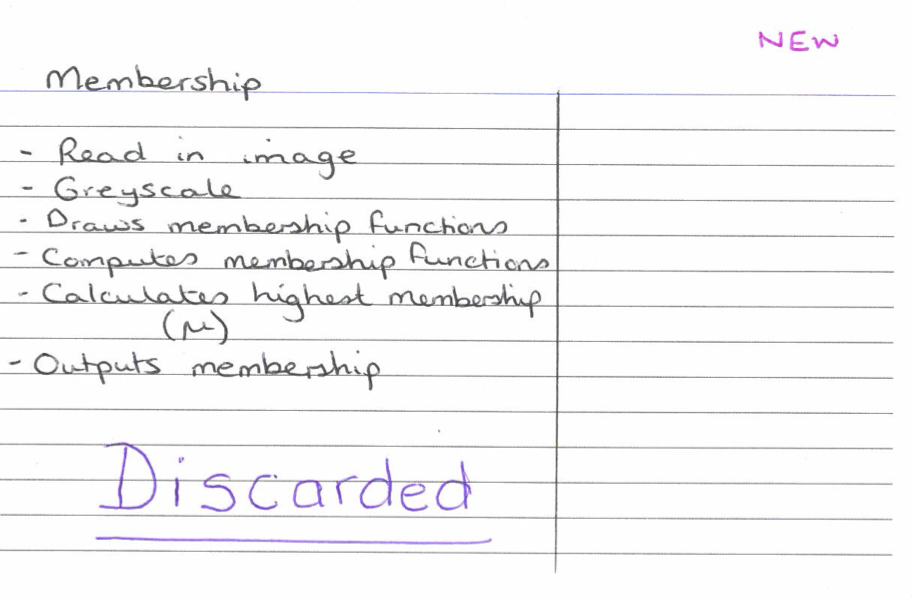 NEW
Membership
- Read in image
- Greyscale
- Draws membership functions
- Computes membership functions
- Calculates highest membership
(μ)
- Outputs membership
Discarded